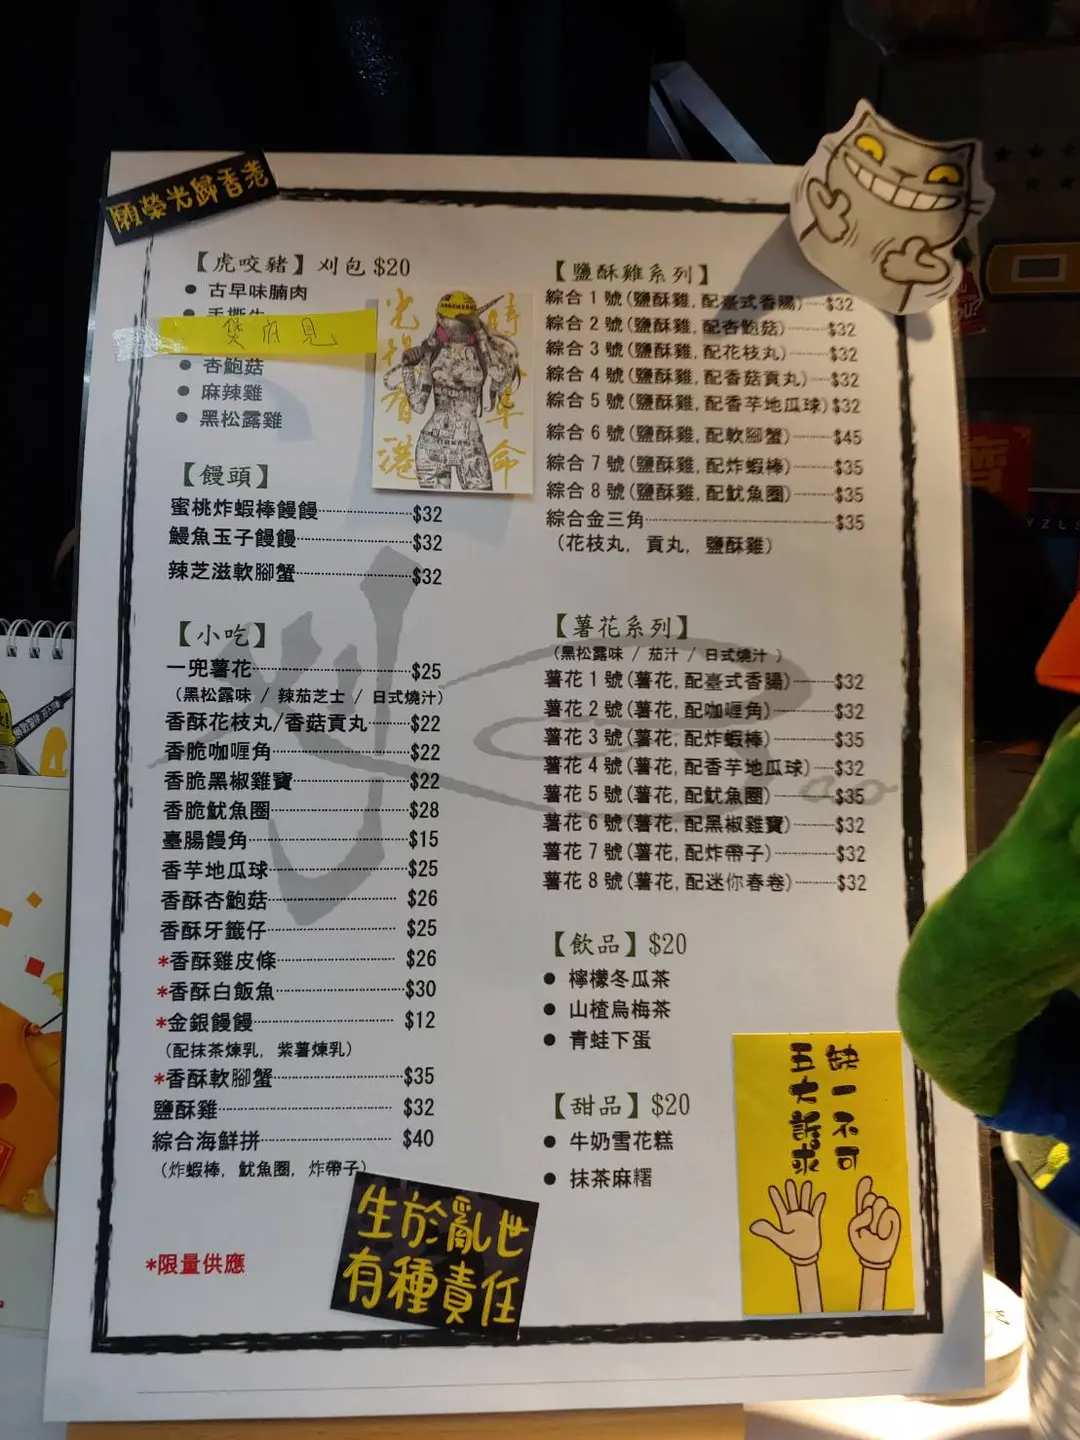 願榮光歸香港
【虎咬豬】刈包 $20
● 古早味腩肉
● 手撕
見
● 杏鮑菇
● 麻辣雞
● 黑松露雞
光復香港
時 革命
【饅頭】
蜜桃炸蝦棒饅饅 $32
鰻魚玉子饅饅 $32
辣芝滋軟腳蟹 $32
【小吃】
一兜薯花 $25
(黑松露味 / 辣茄芝士 / 日式燒汁)
香酥花枝丸/香菇貢丸 $22
香脆咖喱角 $22
香脆黑椒雞寶 $22
香脆魷魚圈 $28
臺腸饅角 $15
香芋地瓜球 $25
香酥杏鮑菇 $26
香酥牙籤仔 $25
*香酥雞皮條 $26
*香酥白飯魚 $30
*金銀饅饅 $12
(配抹茶煉乳, 紫薯煉乳)
*香酥軟腳蟹 $35
鹽酥雞 $32
綜合海鮮拼 $40
(炸蝦棒, 魷魚圈, 炸帶子)
*限量供應
生於亂世
有種責任
【鹽酥雞系列】
綜合 1 號(鹽酥雞, 配臺式香腸) $32
綜合 2 號(鹽酥雞, 配杏鮑菇) $32
綜合 3 號(鹽酥雞, 配花枝丸) $32
綜合 4 號(鹽酥雞, 配香菇貢丸) $32
綜合 5 號(鹽酥雞, 配香芋地瓜球) $32
綜合 6 號(鹽酥雞, 配軟腳蟹) $45
綜合 7 號(鹽酥雞, 配炸蝦棒) $35
綜合 8 號(鹽酥雞, 配魷魚圈) $35
綜合金三角 $35
(花枝丸, 貢丸, 鹽酥雞)
【薯花系列】
(黑松露味 / 茄汁 / 日式燒汁 )
薯花 1 號(薯花, 配臺式香腸) $32
薯花 2 號(薯花, 配咖喱角) $32
薯花 3 號(薯花, 配炸蝦棒) $35
薯花 4 號(薯花, 配香芋地瓜球) $32
薯花 5 號(薯花, 配魷魚圈) $35
薯花 6 號(薯花, 配黑椒雞寶) $32
薯花 7 號(薯花, 配炸帶子) $32
薯花 8 號(薯花, 配迷你春卷) $32
【飲品】$20
● 檸檬冬瓜茶
● 山楂烏梅茶
● 青蛙下蛋
【甜品】$20
● 牛奶雪花糕
● 抹茶麻糬
五大訴求
缺一不可
YZLS